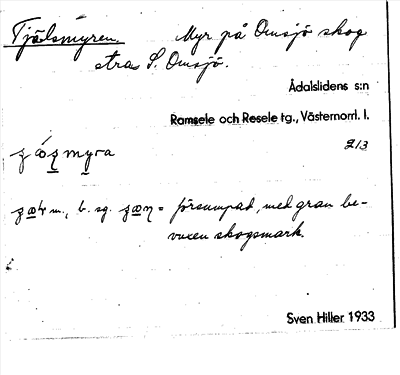 Tjälsmyren. Myr på Omsjö skog
strax S. Omsjö.
Ådalslidens s:n
Ramsele och Resele tg., Västernorrl. l.
213
myra
m., b. sg. = försumpad, med gran be-
vuxen skogsmark.
Sven Hiller 1933